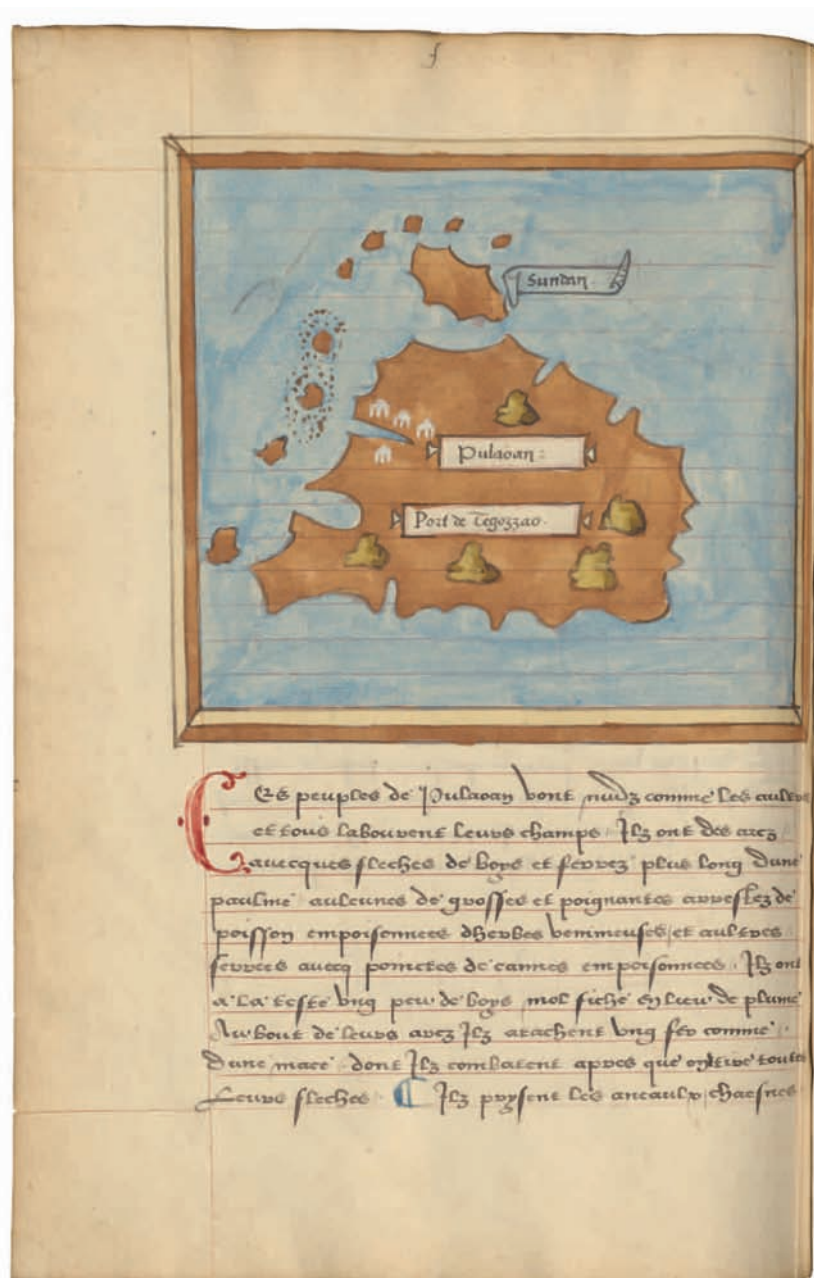 Sundan.
Pulaoan:
Port de Tegozzao.
Ces peuples de Pulaoan vont nudz comme les aultres
et tous labourent leurs champs. Ilz ont des arcz
avecques fleches de boys et ferrez plus long dune
paulme aulcunes de grosses et poignantes arrestez de
poisson empoisonnees dherbes vennmeuses, et aultres
ferrees avecq poinctes de cannes empoisonnees. Ilz ont
a la teste ung peu de boys mol fiche en lieu de plume
Au bout de leurs arcz Ilz atachent ung fer comme
dune mace dont Ilz combatent apres que ont tire toutes
Leurs fleches. ¶ Ilz prysent les aneaulx, chaesnes